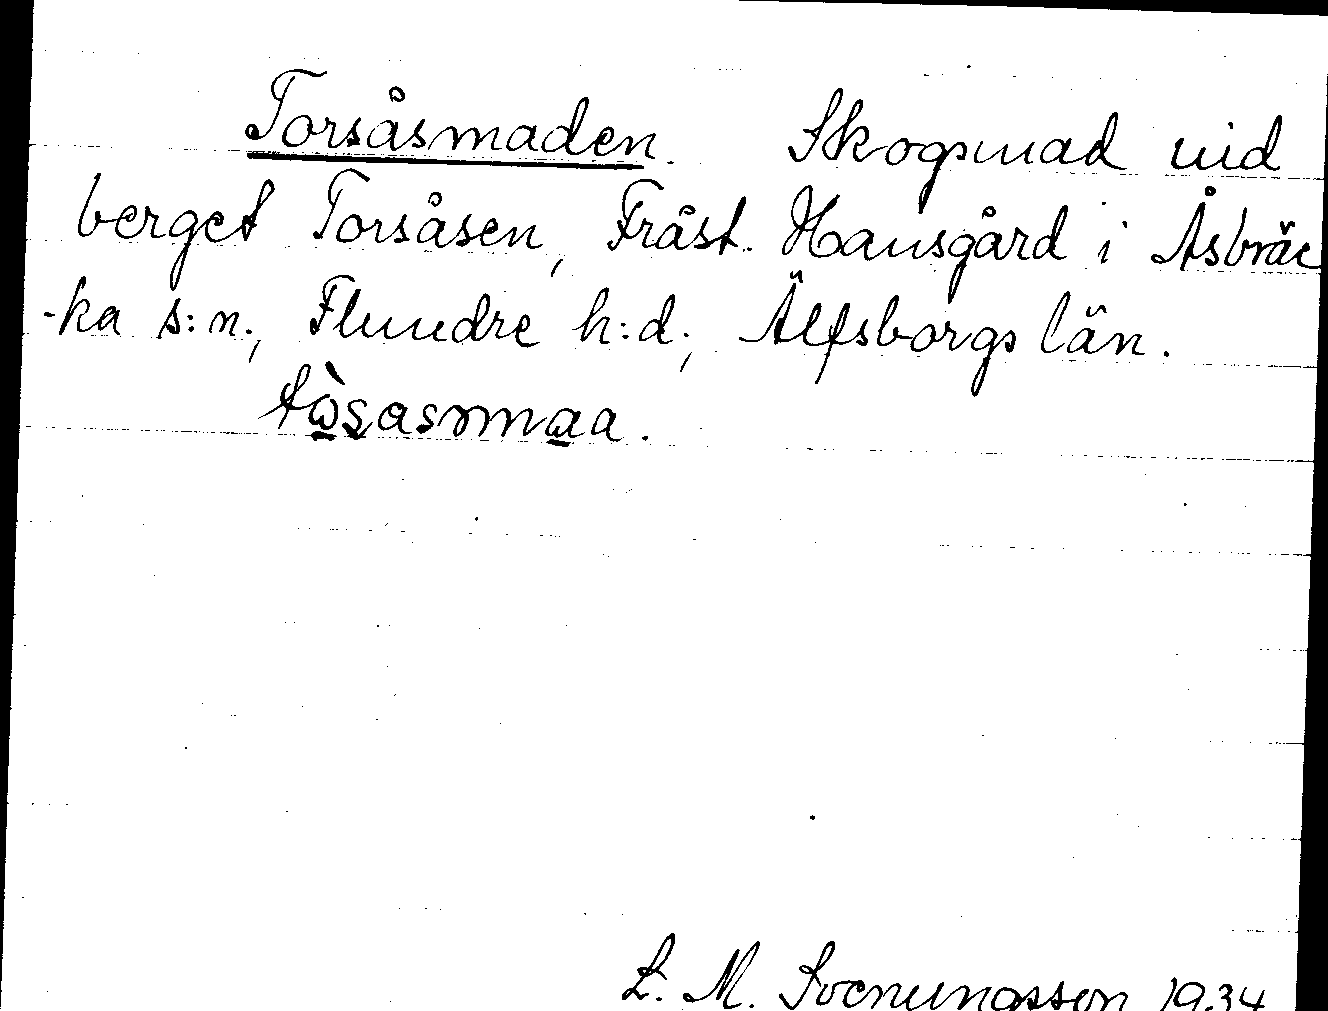 Torsåsmaden. Skogsmad vid
berget Torsåsen, Fråst. Hansgård i Åsbräc
-ka s:n., Flundre h:d., Älfsborgs län.
L. M. Svenungsson 1934